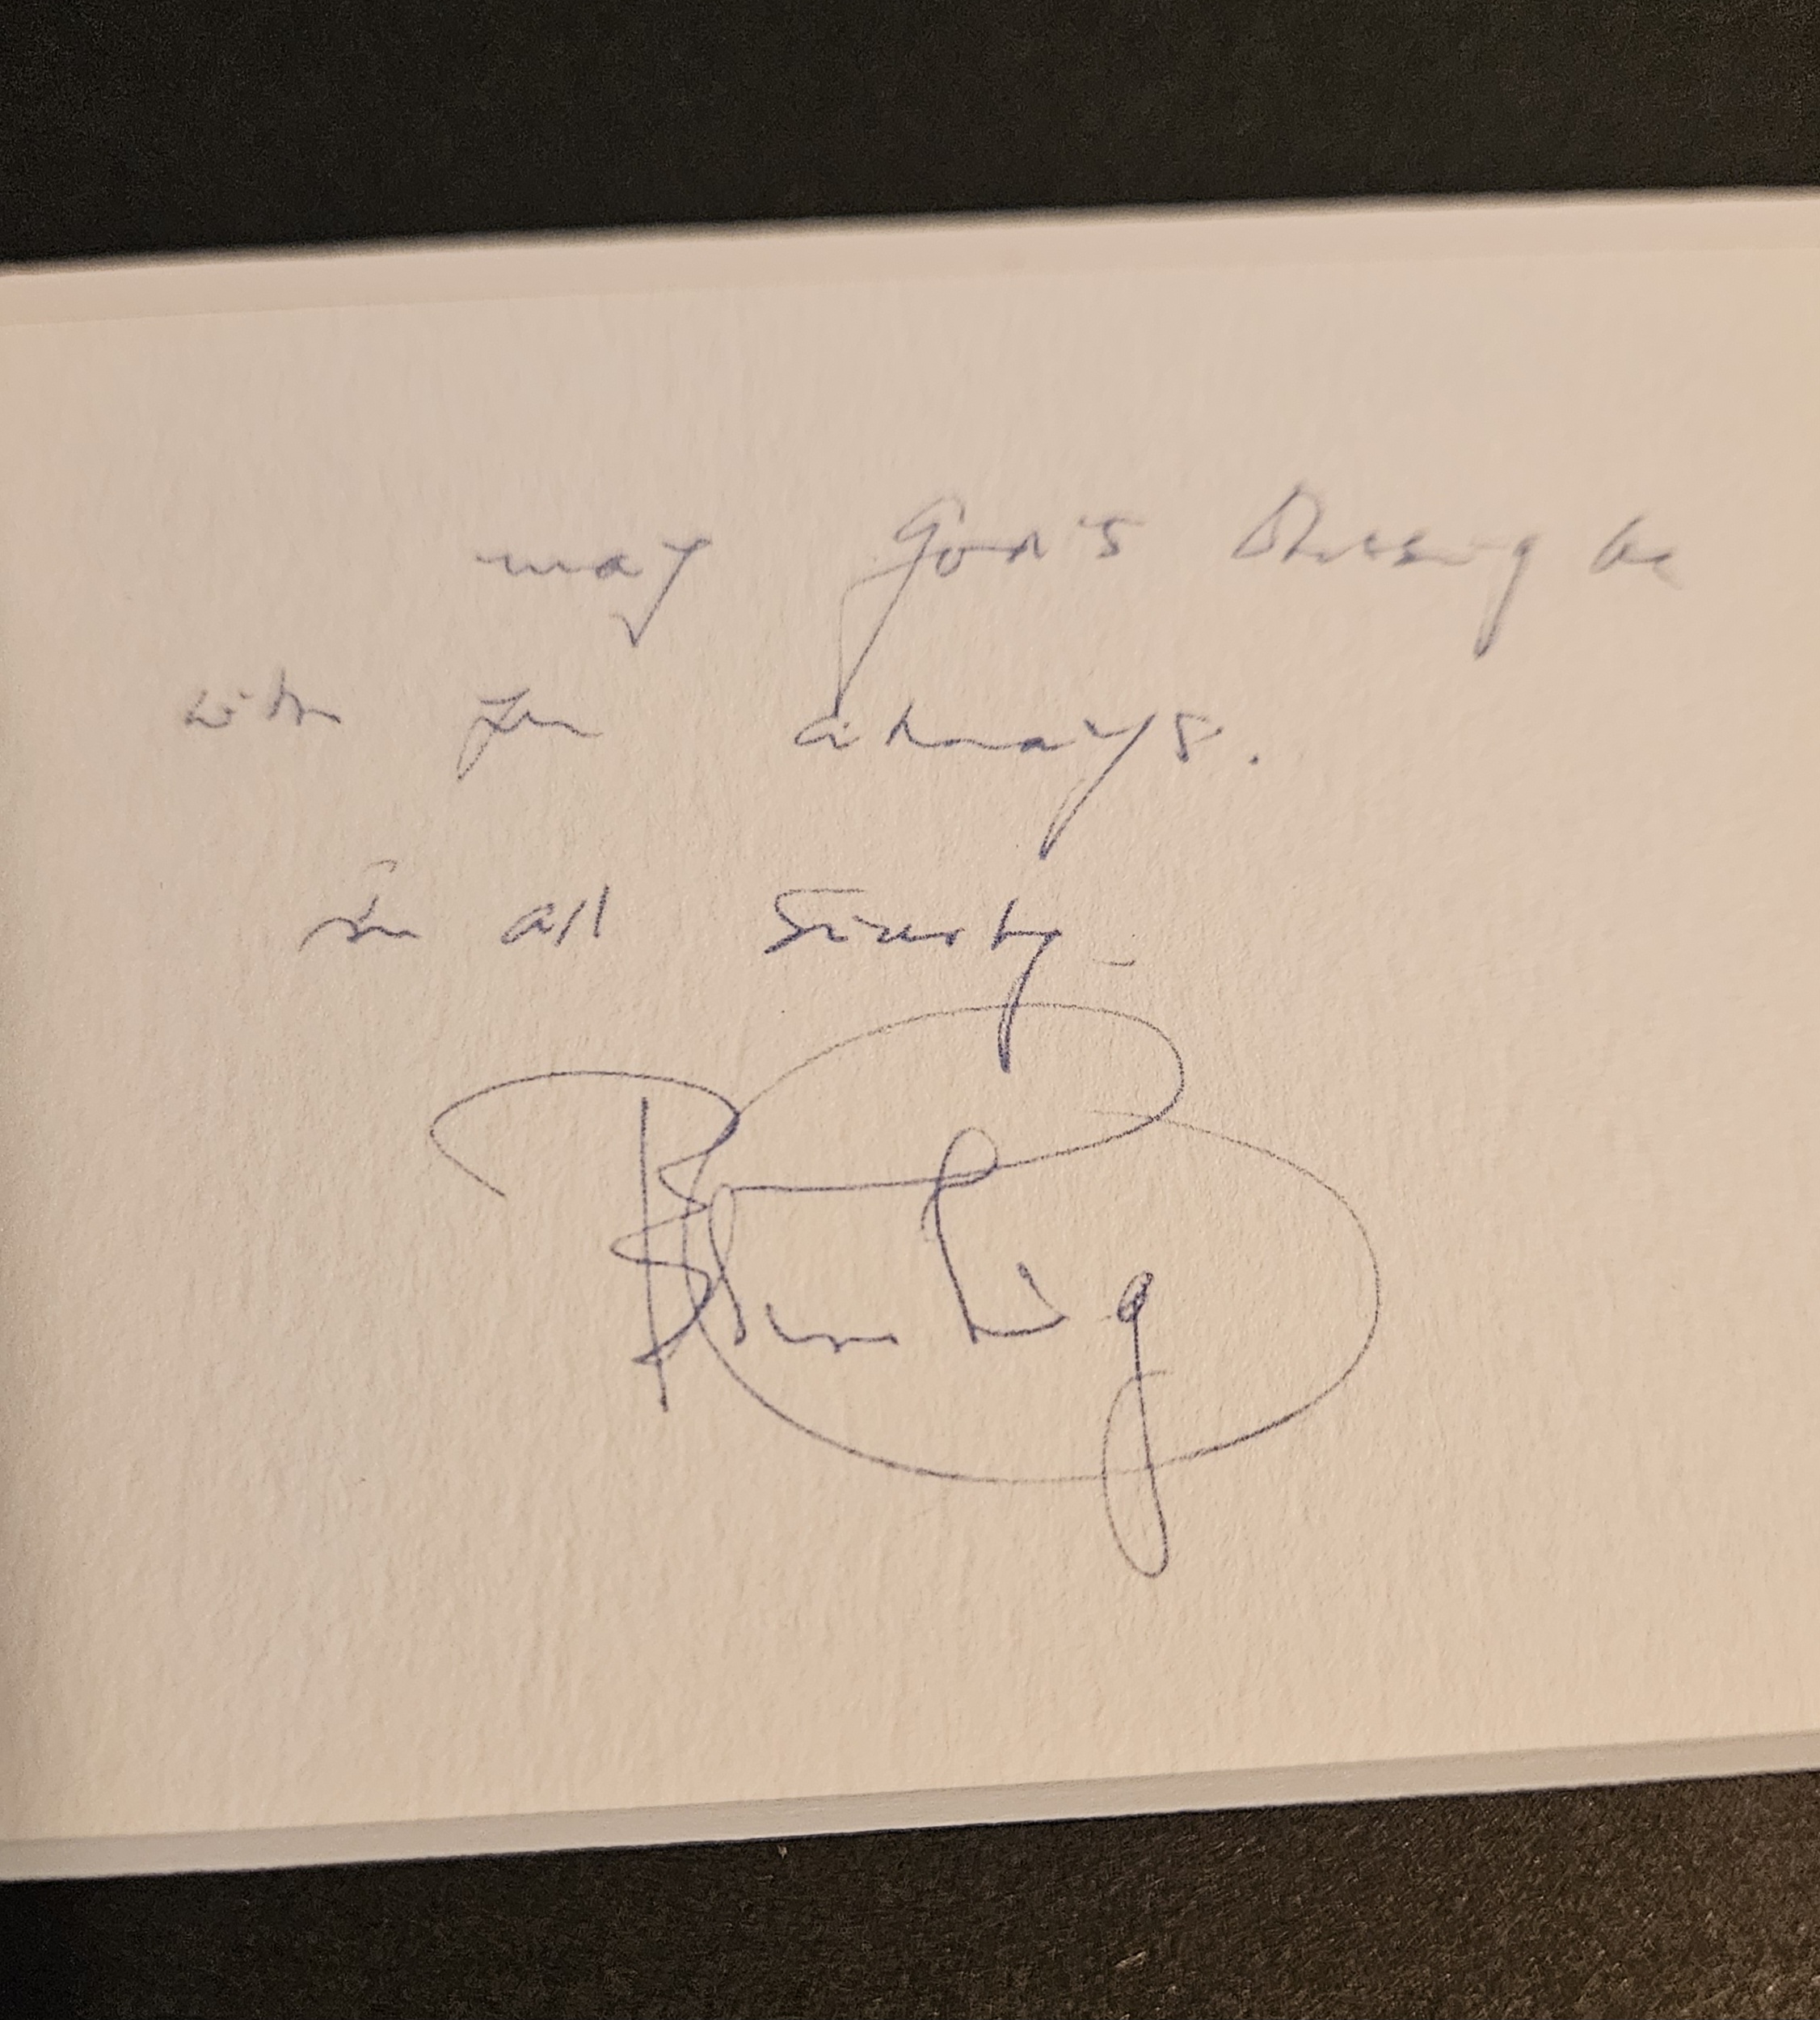 may God's Blessing be
with you always.
in all Sincerity -